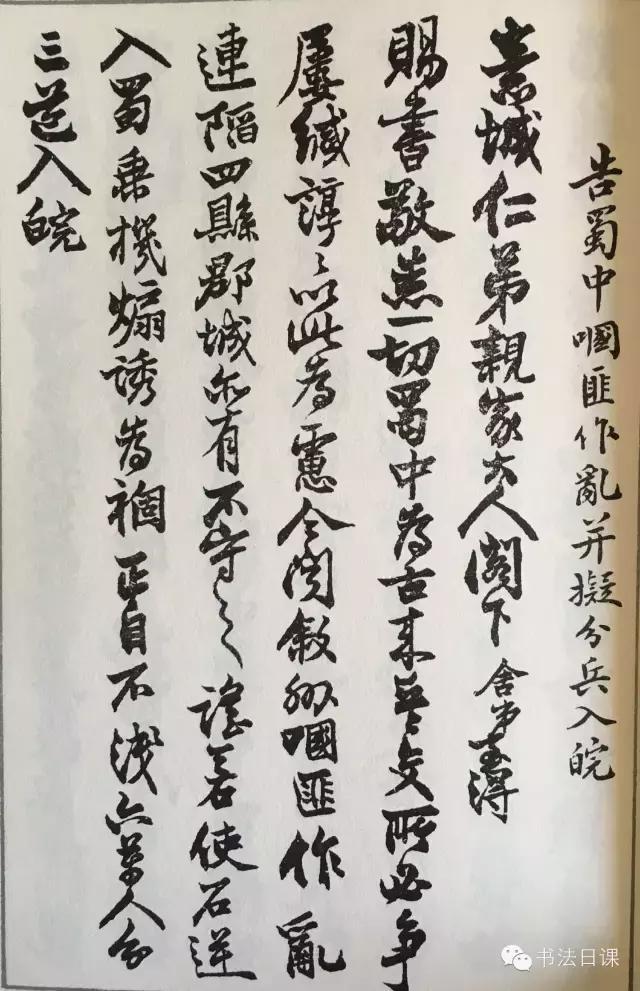 告蜀中嘓匪作亂并擬分兵入皖
意城仁弟親家大人閣下舍弟至得
賜書敬悉一切蜀中為古來兵交所必爭
屢緘諄〻以此為慮今閱敘州嘓匪作亂
連陷四縣郡城亦有不守之謠若使石逆
入蜀乘機煽誘為禍正自不淺六萬人分
三道入皖
书法日课